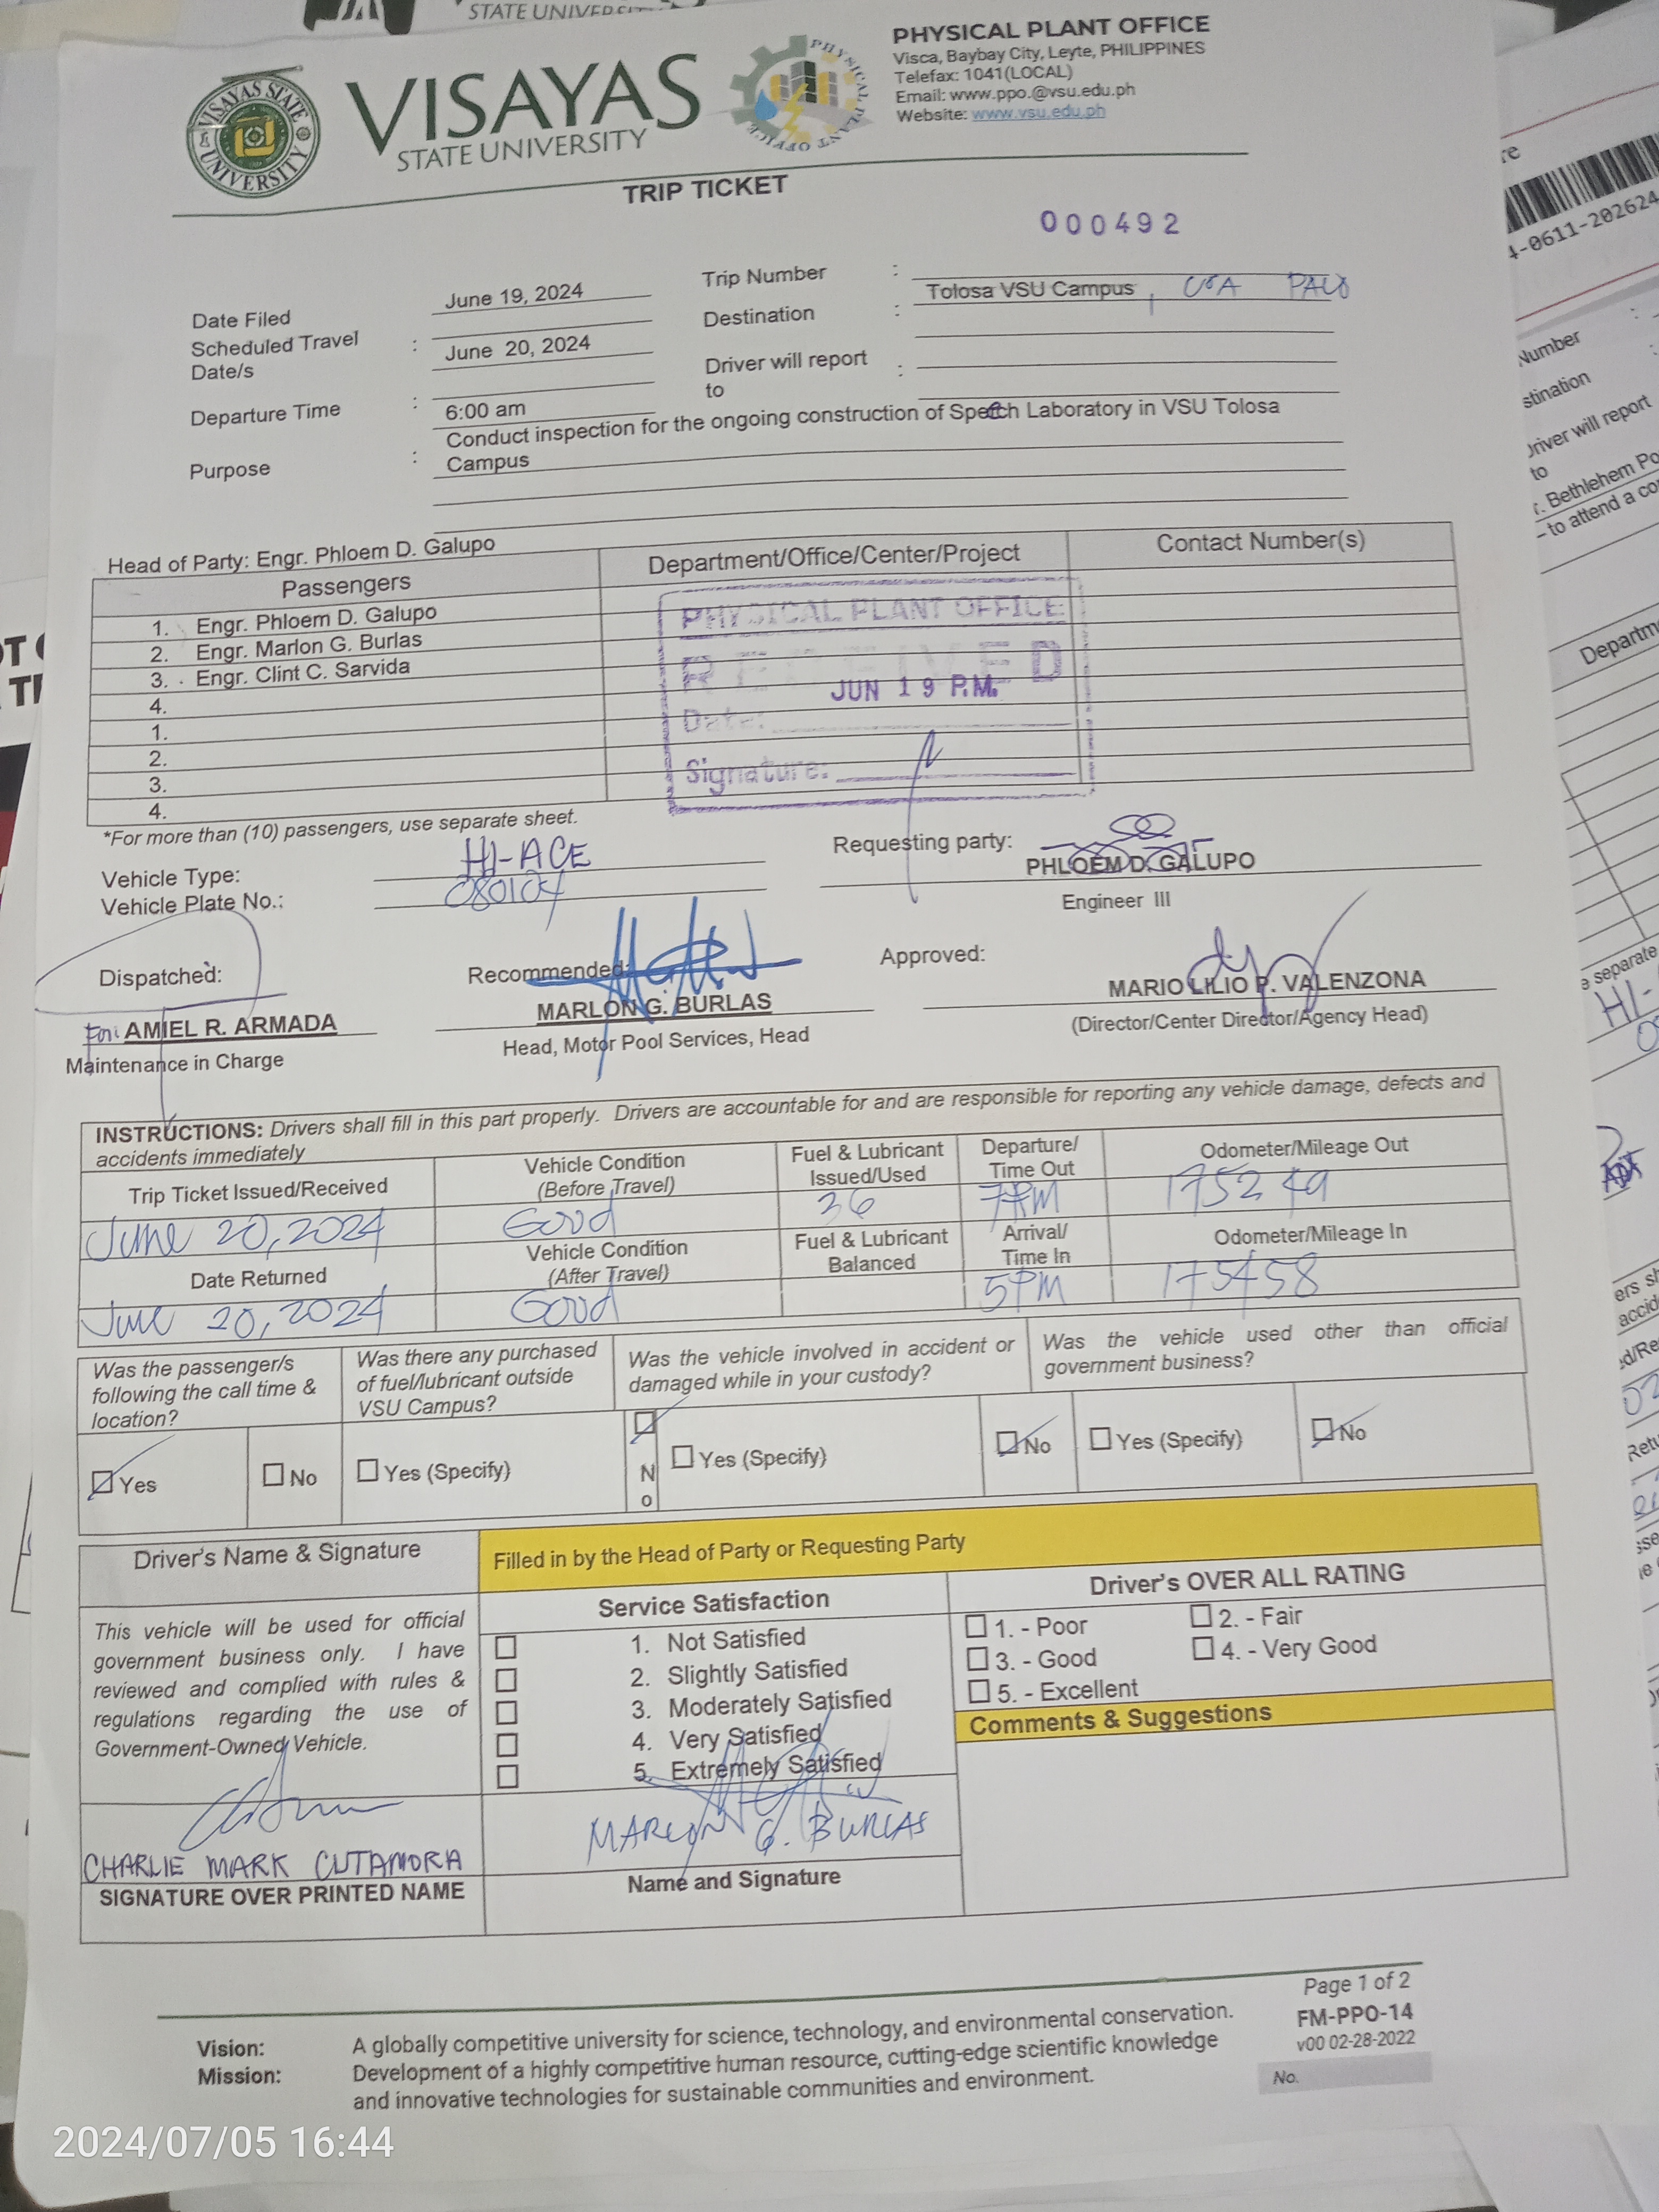 STATE UNIVERSITY
VISAYAS STATE UNIVERSITY
VISAYAS
STATE UNIVERSITY
PHYSICAL PLANT OFFICE
PHYSICAL PLANT OFFICE
Visca, Baybay City, Leyte, PHILIPPINES
Telefax: 1041(LOCAL)
Email: www.ppo.@vsu.edu.ph
Website: www.vsu.edu.ph
TRIP TICKET
000492
Date Filed June 19, 2024
Trip Number :
Scheduled Travel Date/s : June 20, 2024
Destination : Tolosa VSU Campus,
Driver will report to :
Departure Time : 6:00 am
Purpose : Conduct inspection for the ongoing construction of Speech Laboratory in VSU Tolosa
Campus
Head of Party: Engr. Phloem D. Galupo
Passengers Department/Office/Center/Project Contact Number(s)
1. Engr. Phloem D. Galupo
2. Engr. Marlon G. Burlas
3. Engr. Clint C. Sarvida
4.
1.
2.
3.
4.
PHYSICAL PLANT OFFICE
RECEIVED
JUN 19 P.M.
Date:
Signature:
*For more than (10) passengers, use separate sheet.
Vehicle Type: HI-ACE
Vehicle Plate No.: 080104
Requesting party:
PHLOEM D. GALUPO
Engineer III
Dispatched: Recommended: Approved:
For: AMIEL R. ARMADA
Maintenance in Charge
MARLON G. BURLAS
Head, Motor Pool Services, Head
MARIO LILIO P. VALENZONA
(Director/Center Director/Agency Head)
INSTRUCTIONS: Drivers shall fill in this part properly. Drivers are accountable for and are responsible for reporting any vehicle damage, defects and
accidents immediately
Trip Ticket Issued/Received Vehicle Condition (Before Travel) Fuel & Lubricant Issued/Used Departure/ Time Out Odometer/Mileage Out
June 20, 2024 Good 36 7AM 175249
Date Returned Vehicle Condition (After Travel) Fuel & Lubricant Balanced Arrival/ Time In Odometer/Mileage In
June 20, 2024 Good 5PM 175458
Was the passenger/s following the call time & location?
Was there any purchased of fuel/lubricant outside VSU Campus?
Was the vehicle involved in accident or damaged while in your custody?
Was the vehicle used other than official government business?
Yes No Yes (Specify) No Yes (Specify) No Yes (Specify) No
Driver's Name & Signature
Filled in by the Head of Party or Requesting Party
This vehicle will be used for official
government business only. I have
reviewed and complied with rules &
regulations regarding the use of
Government-Owned Vehicle.
CHARLIE MARK CUTAMORA
SIGNATURE OVER PRINTED NAME
Service Satisfaction
1. Not Satisfied
2. Slightly Satisfied
3. Moderately Satisfied
4. Very Satisfied
5. Extremely Satisfied
MARLON G. BURLAS
Name and Signature
Driver's OVER ALL RATING
1. - Poor 2. - Fair
3. - Good 4. - Very Good
5. - Excellent
Comments & Suggestions
Page 1 of 2
FM-PPO-14
v00 02-28-2022
No.
Vision: A globally competitive university for science, technology, and environmental conservation.
Mission: Development of a highly competitive human resource, cutting-edge scientific knowledge
and innovative technologies for sustainable communities and environment.
2024/07/05 16:44
4-0611-202624
Number
stination
Driver will report
to
. Bethlehem Po
to attend a co
Departm
e separate
HI-